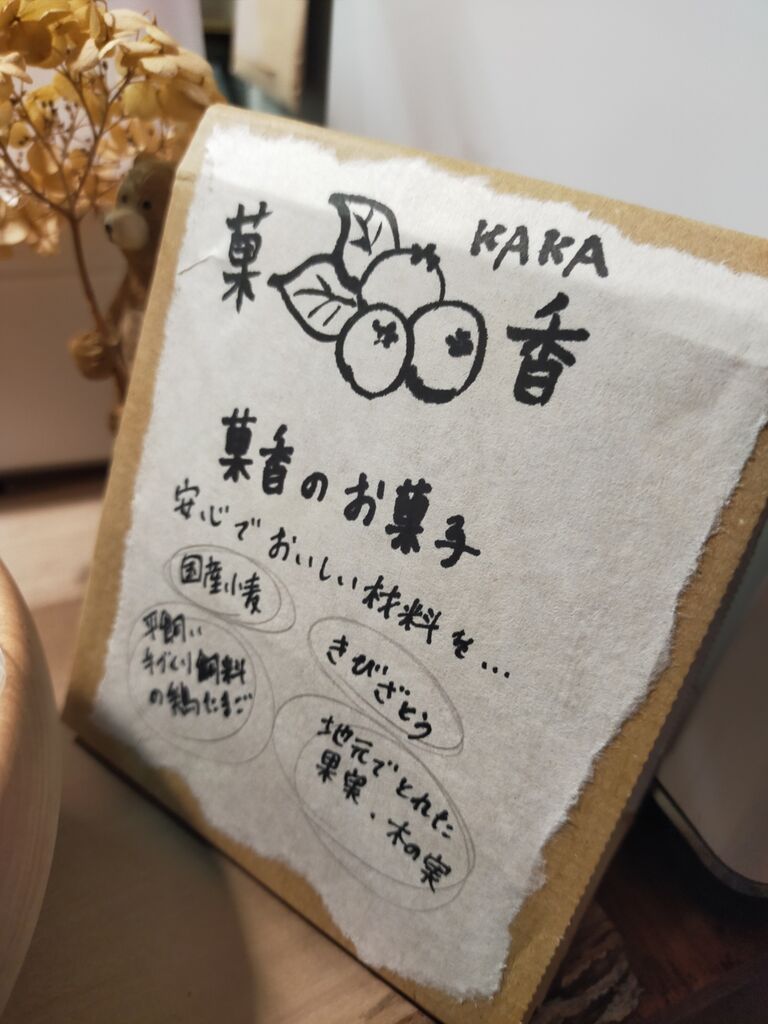 菓 香
KAKA
菓香のお菓子
安心でおいしい材料を...
国産小麦
きびざとう
平飼い
手づくり飼料
の鶏たまご
地元でとれた
果実・木の実